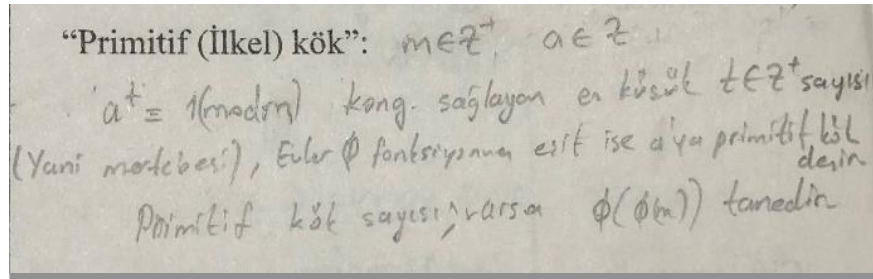 “Primitif (İlkel) kök”: m∈Z⁺, a∈Z,
a^t ≡ 1(mod m) kong. sağlayan en küçük t∈Z⁺ sayısı
(Yani mertebesi), Euler ϕ fonksiyonuna eşit ise a'ya primitif kök
denir
Primitif kök sayısı, varsa ϕ(ϕ(m)) tanedir